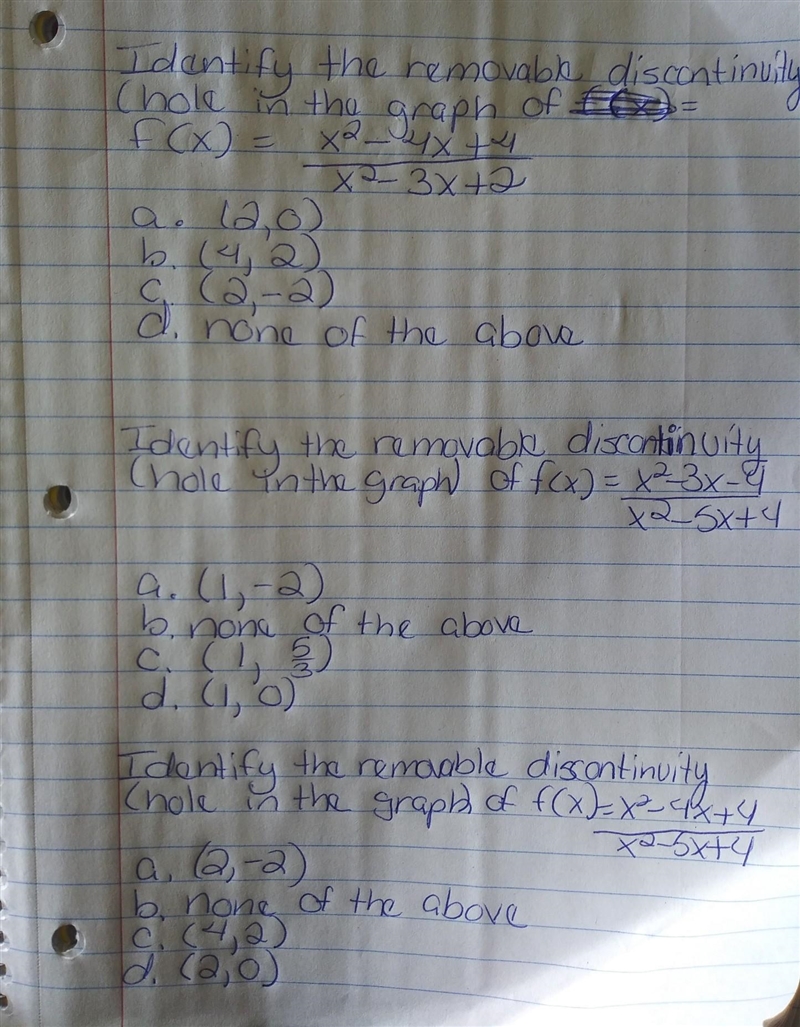 Identify the removable discontinuity
(hole in the graph of f(x) =
f(x) = x²-4x+4 / x²-3x+2
a. (2,0)
b. (4,2)
c. (2,-2)
d. none of the above
Identify the removable discontinuity
(hole in the graph) of f(x) = x²-3x-4 / x²-5x+4
a. (1,-2)
b. none of the above
c. (1, 5/3)
d. (1, 0)
Identify the removable discontinuity
(hole in the graph) of f(x) = x²-4x+4 / x²-5x+4
a. (2,-2)
b. none of the above
c. (4,2)
d. (2,0)